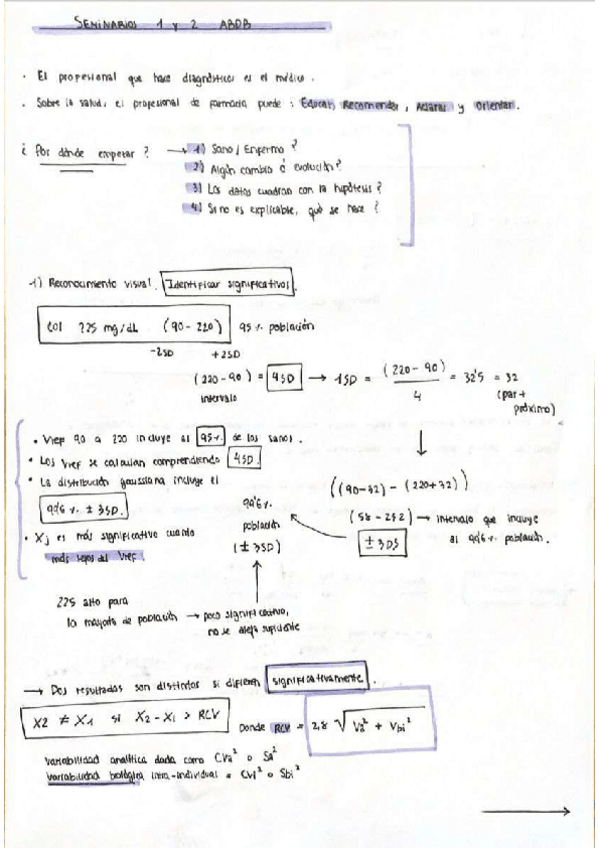 SEMINARIOS 1 y 2 ABDB
· El profesional que hace diagnósticos es el médico.
· Sobre la salud, el profesional de farmacia puede: Educar, Recomendar, Aclarar y Orientar.
¿Por dónde empezar? → 1) Sano / Enfermo?
2) Algún cambio ó evolución?
3) Los datos cuadran con la hipótesis?
4) Si no es explicable, qué se hace?
-1) Reconocimiento visual. Identificar significativos.
Col 225 mg/dL (90 - 220) 95% población
-2SD +2SD
(220-90) = 4SD → 1SD = (220 - 90) / 4 = 32'5 = 32
intervalo
(par + próximo)
• Vref 90 a 220 incluye al 95% de los sanos.
• Los Vref se calculan comprendiendo 4SD.
• La distribución gaussiana incluye el
99'6% ± 3SD.
• Xj es más significativo cuanto
más lejos del Vref.
((90-32) - (220+32))
(58 - 252) → intervalo que incluye
± 3DS al 99'6% población.
99'6%
población
(± 3SD)
225 alto para
la mayoría de población → poco significativo,
no se aleja suficiente
→ Dos resultados son distintos si difieren significativamente.
X2 ≠ X1 si X2 - X1 > RCV Donde RCV = 2,8 √ Va² + Vbi²
Variabilidad analítica dada como CVa² o Sa²
Variabilidad biológica intra-individual = CVi² o Sbi²